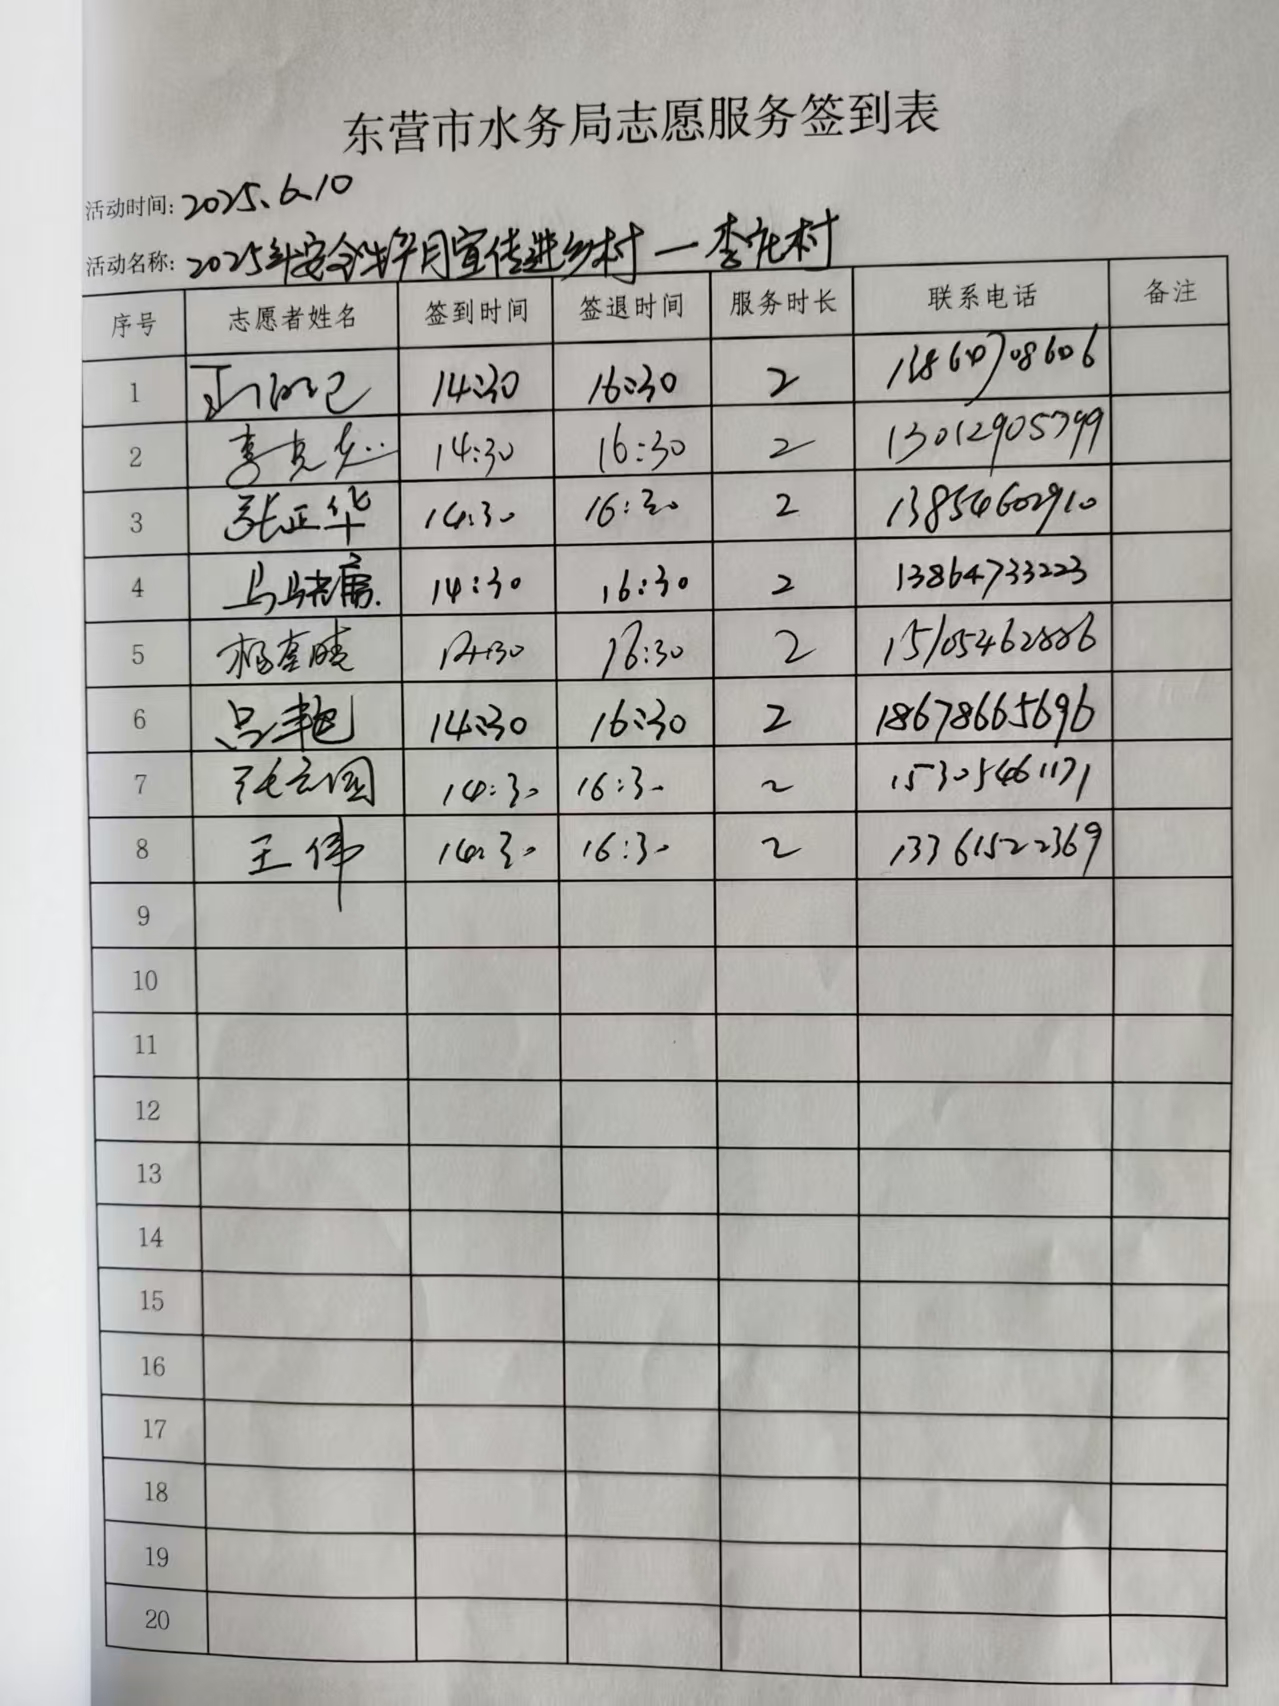 东营市水务局志愿服务签到表
活动时间: 2025.6.10
活动名称: 2025年安全生产月宣传进乡村—李屯村
序号 志愿者姓名 签到时间 签退时间 服务时长 联系电话 备注
1 14:30 16:30 2
2 李 14:30 16:30 2 13012905799
3 张正华 14:30 16:30 2 13854602910
4 马 14:30 16:30 2 13864733223
5 杨 16:30 2 15105462886
6 吕艳 14:30 16:30 2 18678665696
7 张立国 14:30 16:30 2 15305461171
8 王伟 14:30 16:30 2 13361522369
9
10
11
12
13
14
15
16
17
18
19
20